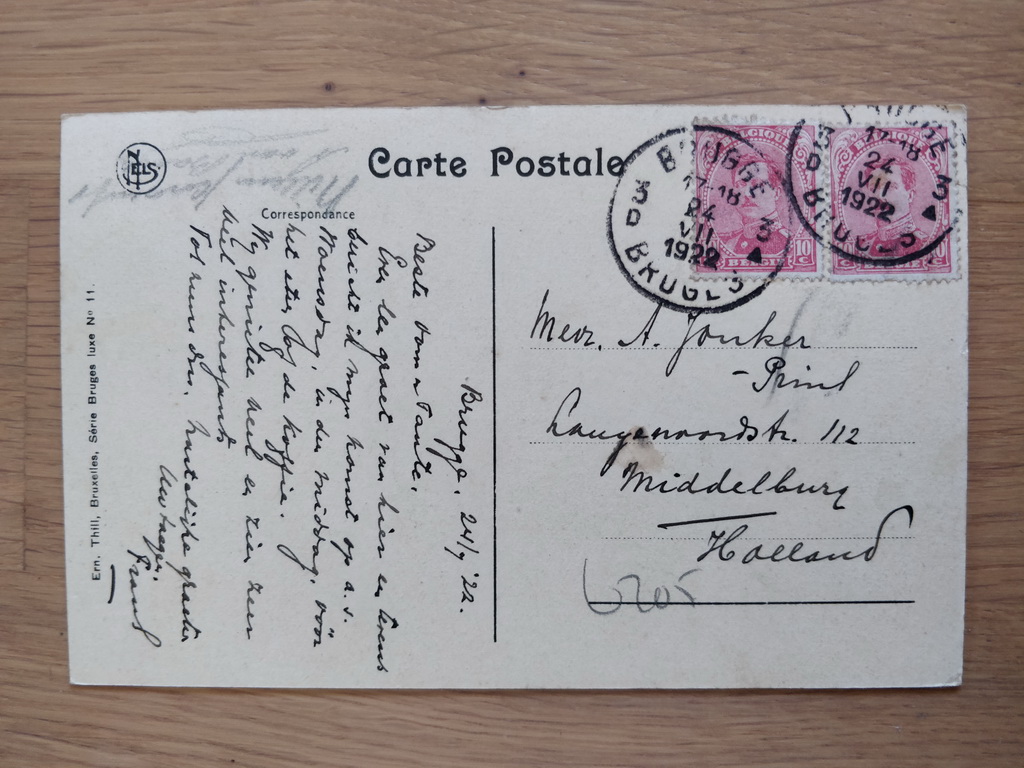 Carte Postale
Correspondance
Brugge, 24/7 '22.
Beste Oom & Tante,
Een groet van hier en tevens
bericht ik mijn komst op a.s.
Woensdag, in den middag, vóór
het eten, los de koffie.
Wij genieten heel en zien zeer
veel interessants
Tot ziens dus. Hartelijke groeten
Frans
BRUGGE 3
17-18
24
VII
1922
3 D BRUGES
BRUGGE 3
17-18
24
VII
1922
3 D BRUGES
BELGIQUE
10 C
BELGIË
Mevr. A. Jonker
- Prins
Langenoordstr. 112
Middelburg
Holland
Ern. Thill, Bruxelles, Série Bruges luxe No 11.